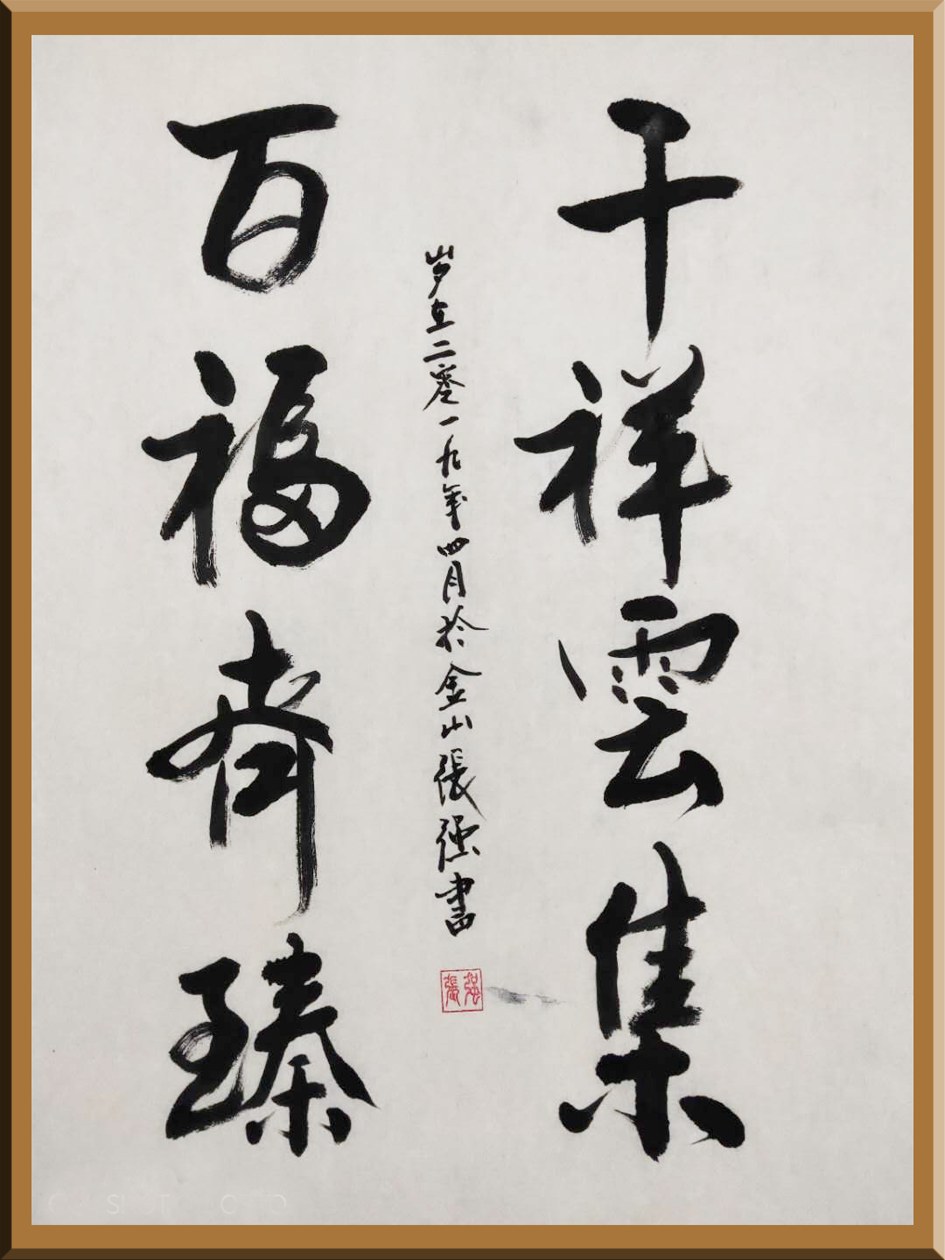 千祥雲集
岁在二零一九年四月於金山張强書
百福齊臻
張强